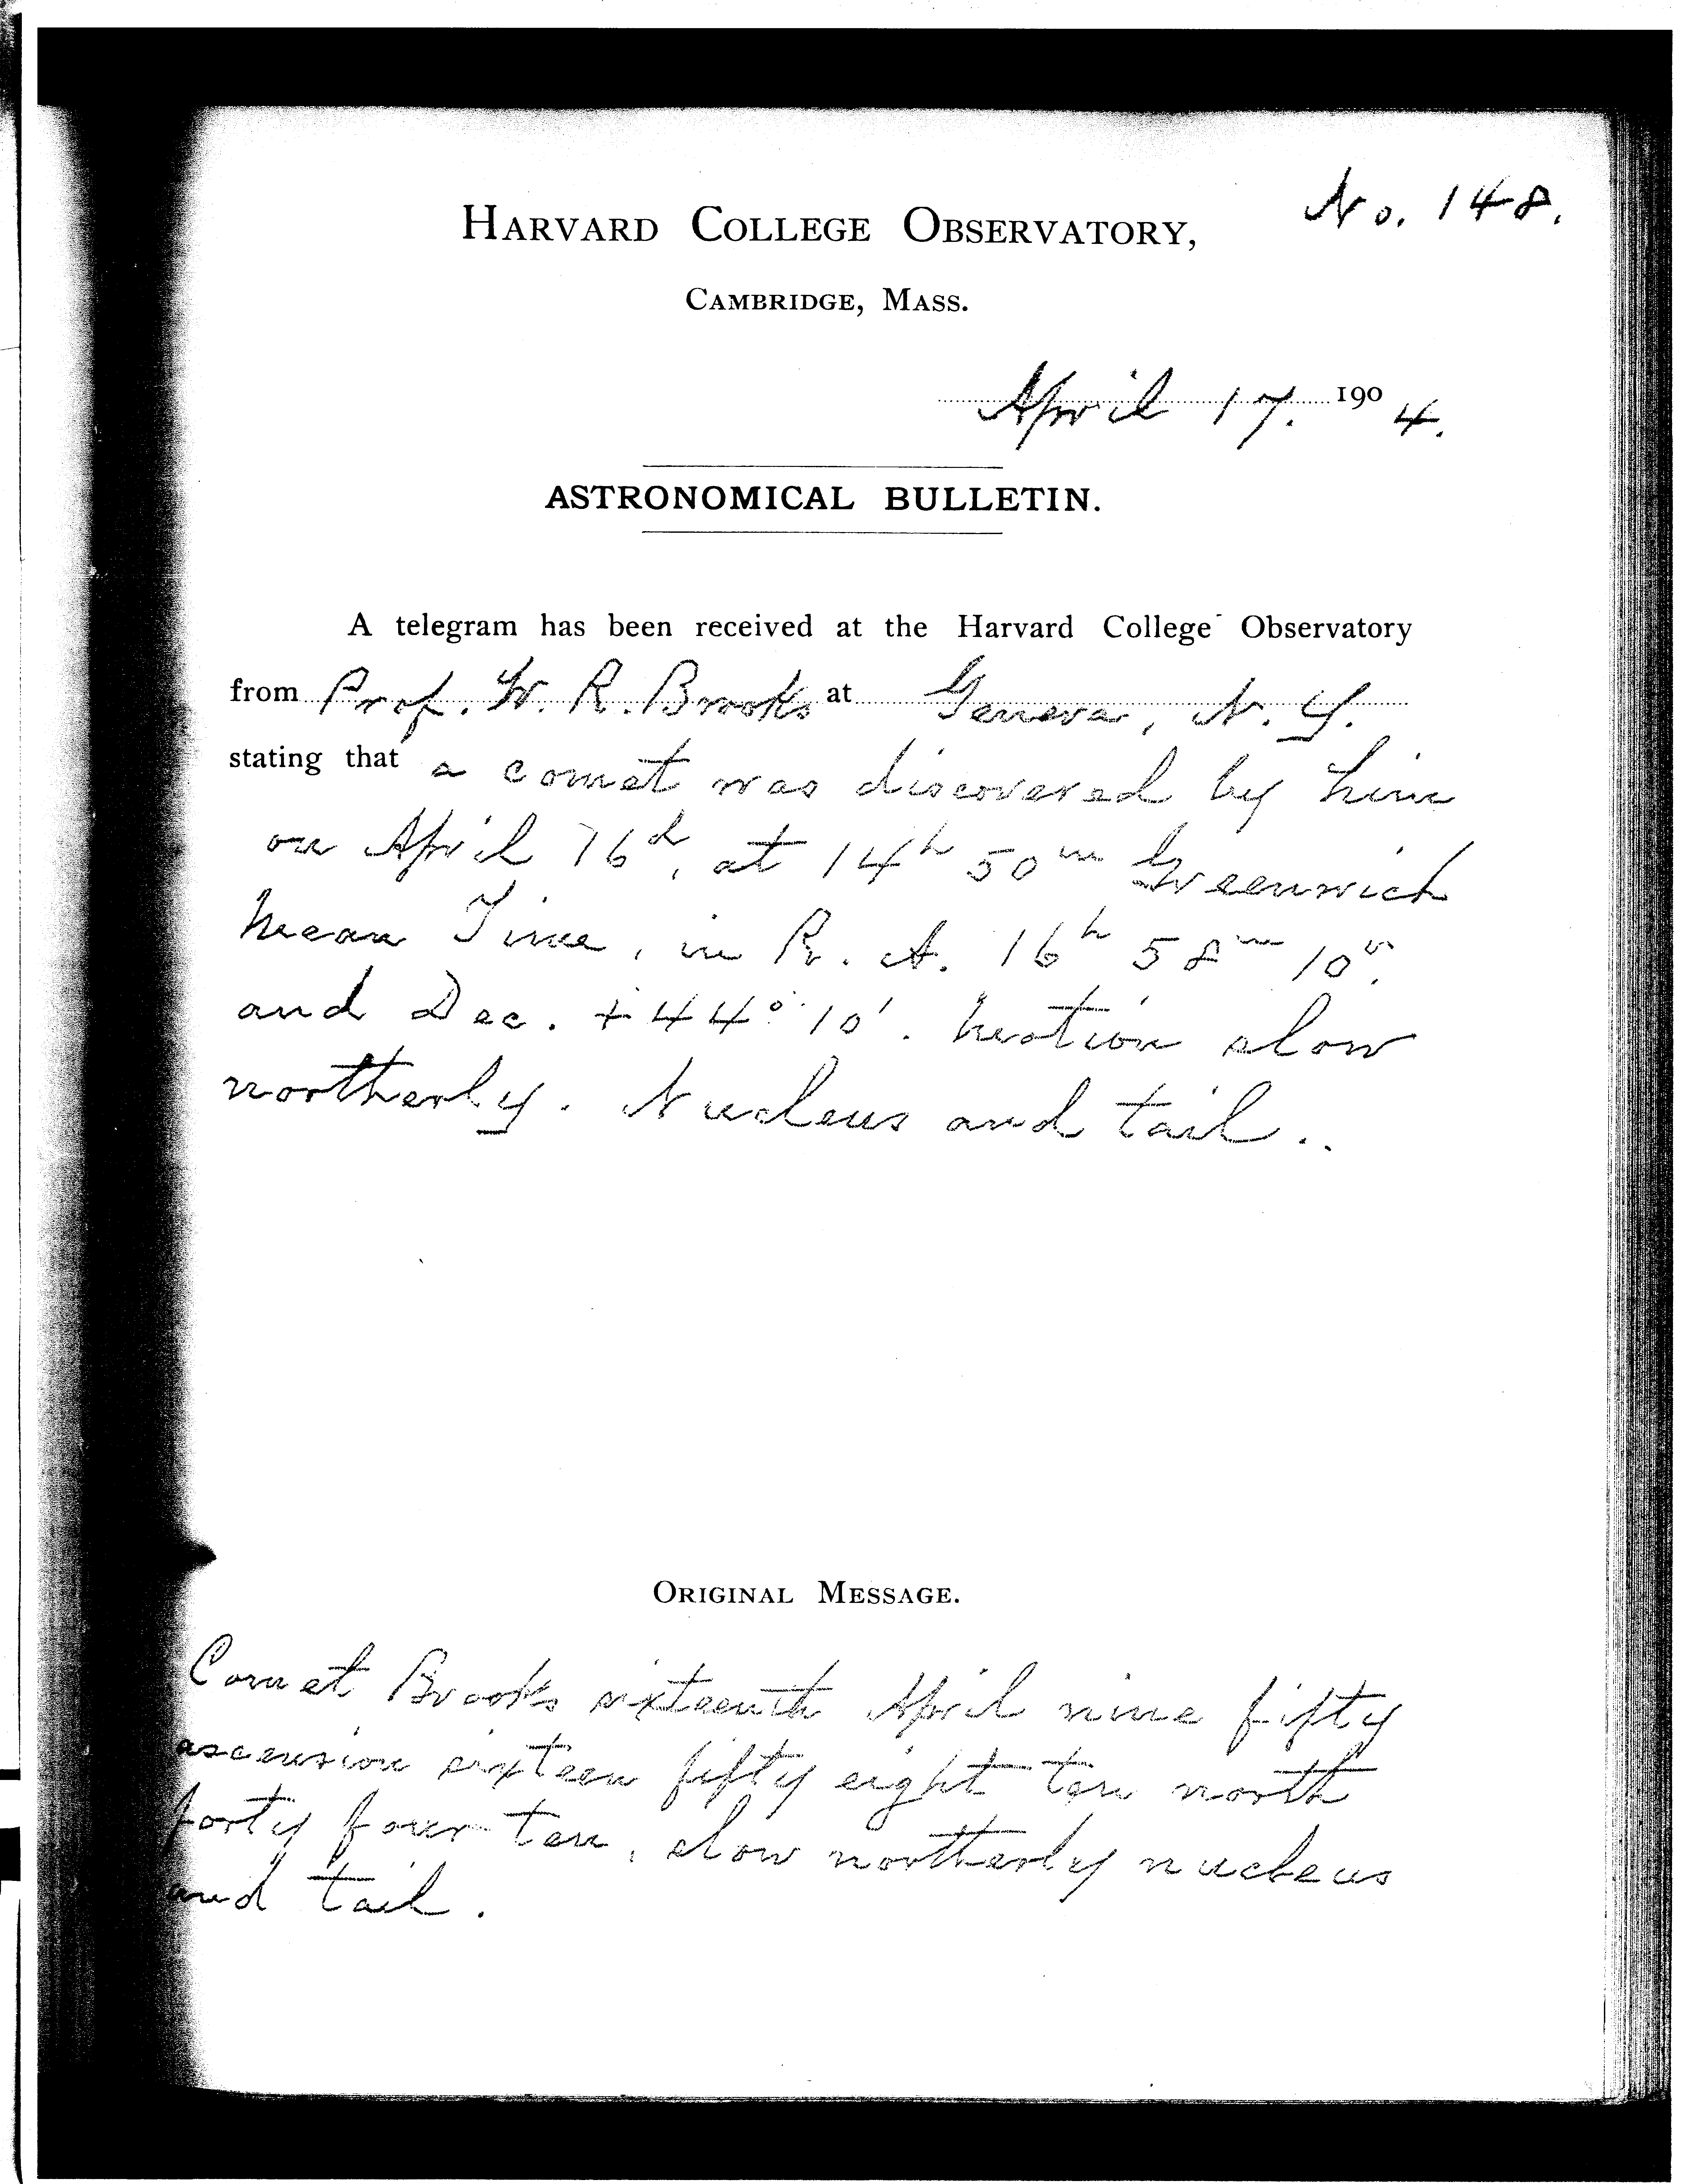 No. 148.
HARVARD COLLEGE OBSERVATORY,
CAMBRIDGE, MASS.
April 17. 1904.
ASTRONOMICAL BULLETIN.
A telegram has been received at the Harvard College Observatory
from Prof. W. R. Brooks at Geneva, N. Y.
stating that a comet was discovered by him
on April 16d, at 14h 50m Greenwich
Mean Time, in R. A. 16h 58m 10s.
and Dec. +44° 10'. Motion slow
northerly. Nucleus and tail..
ORIGINAL MESSAGE.
Comet Brooks sixteenth April nine fifty
ascension sixteen fifty eight ten north
forty four ten, slow northerly nucleus
and tail.